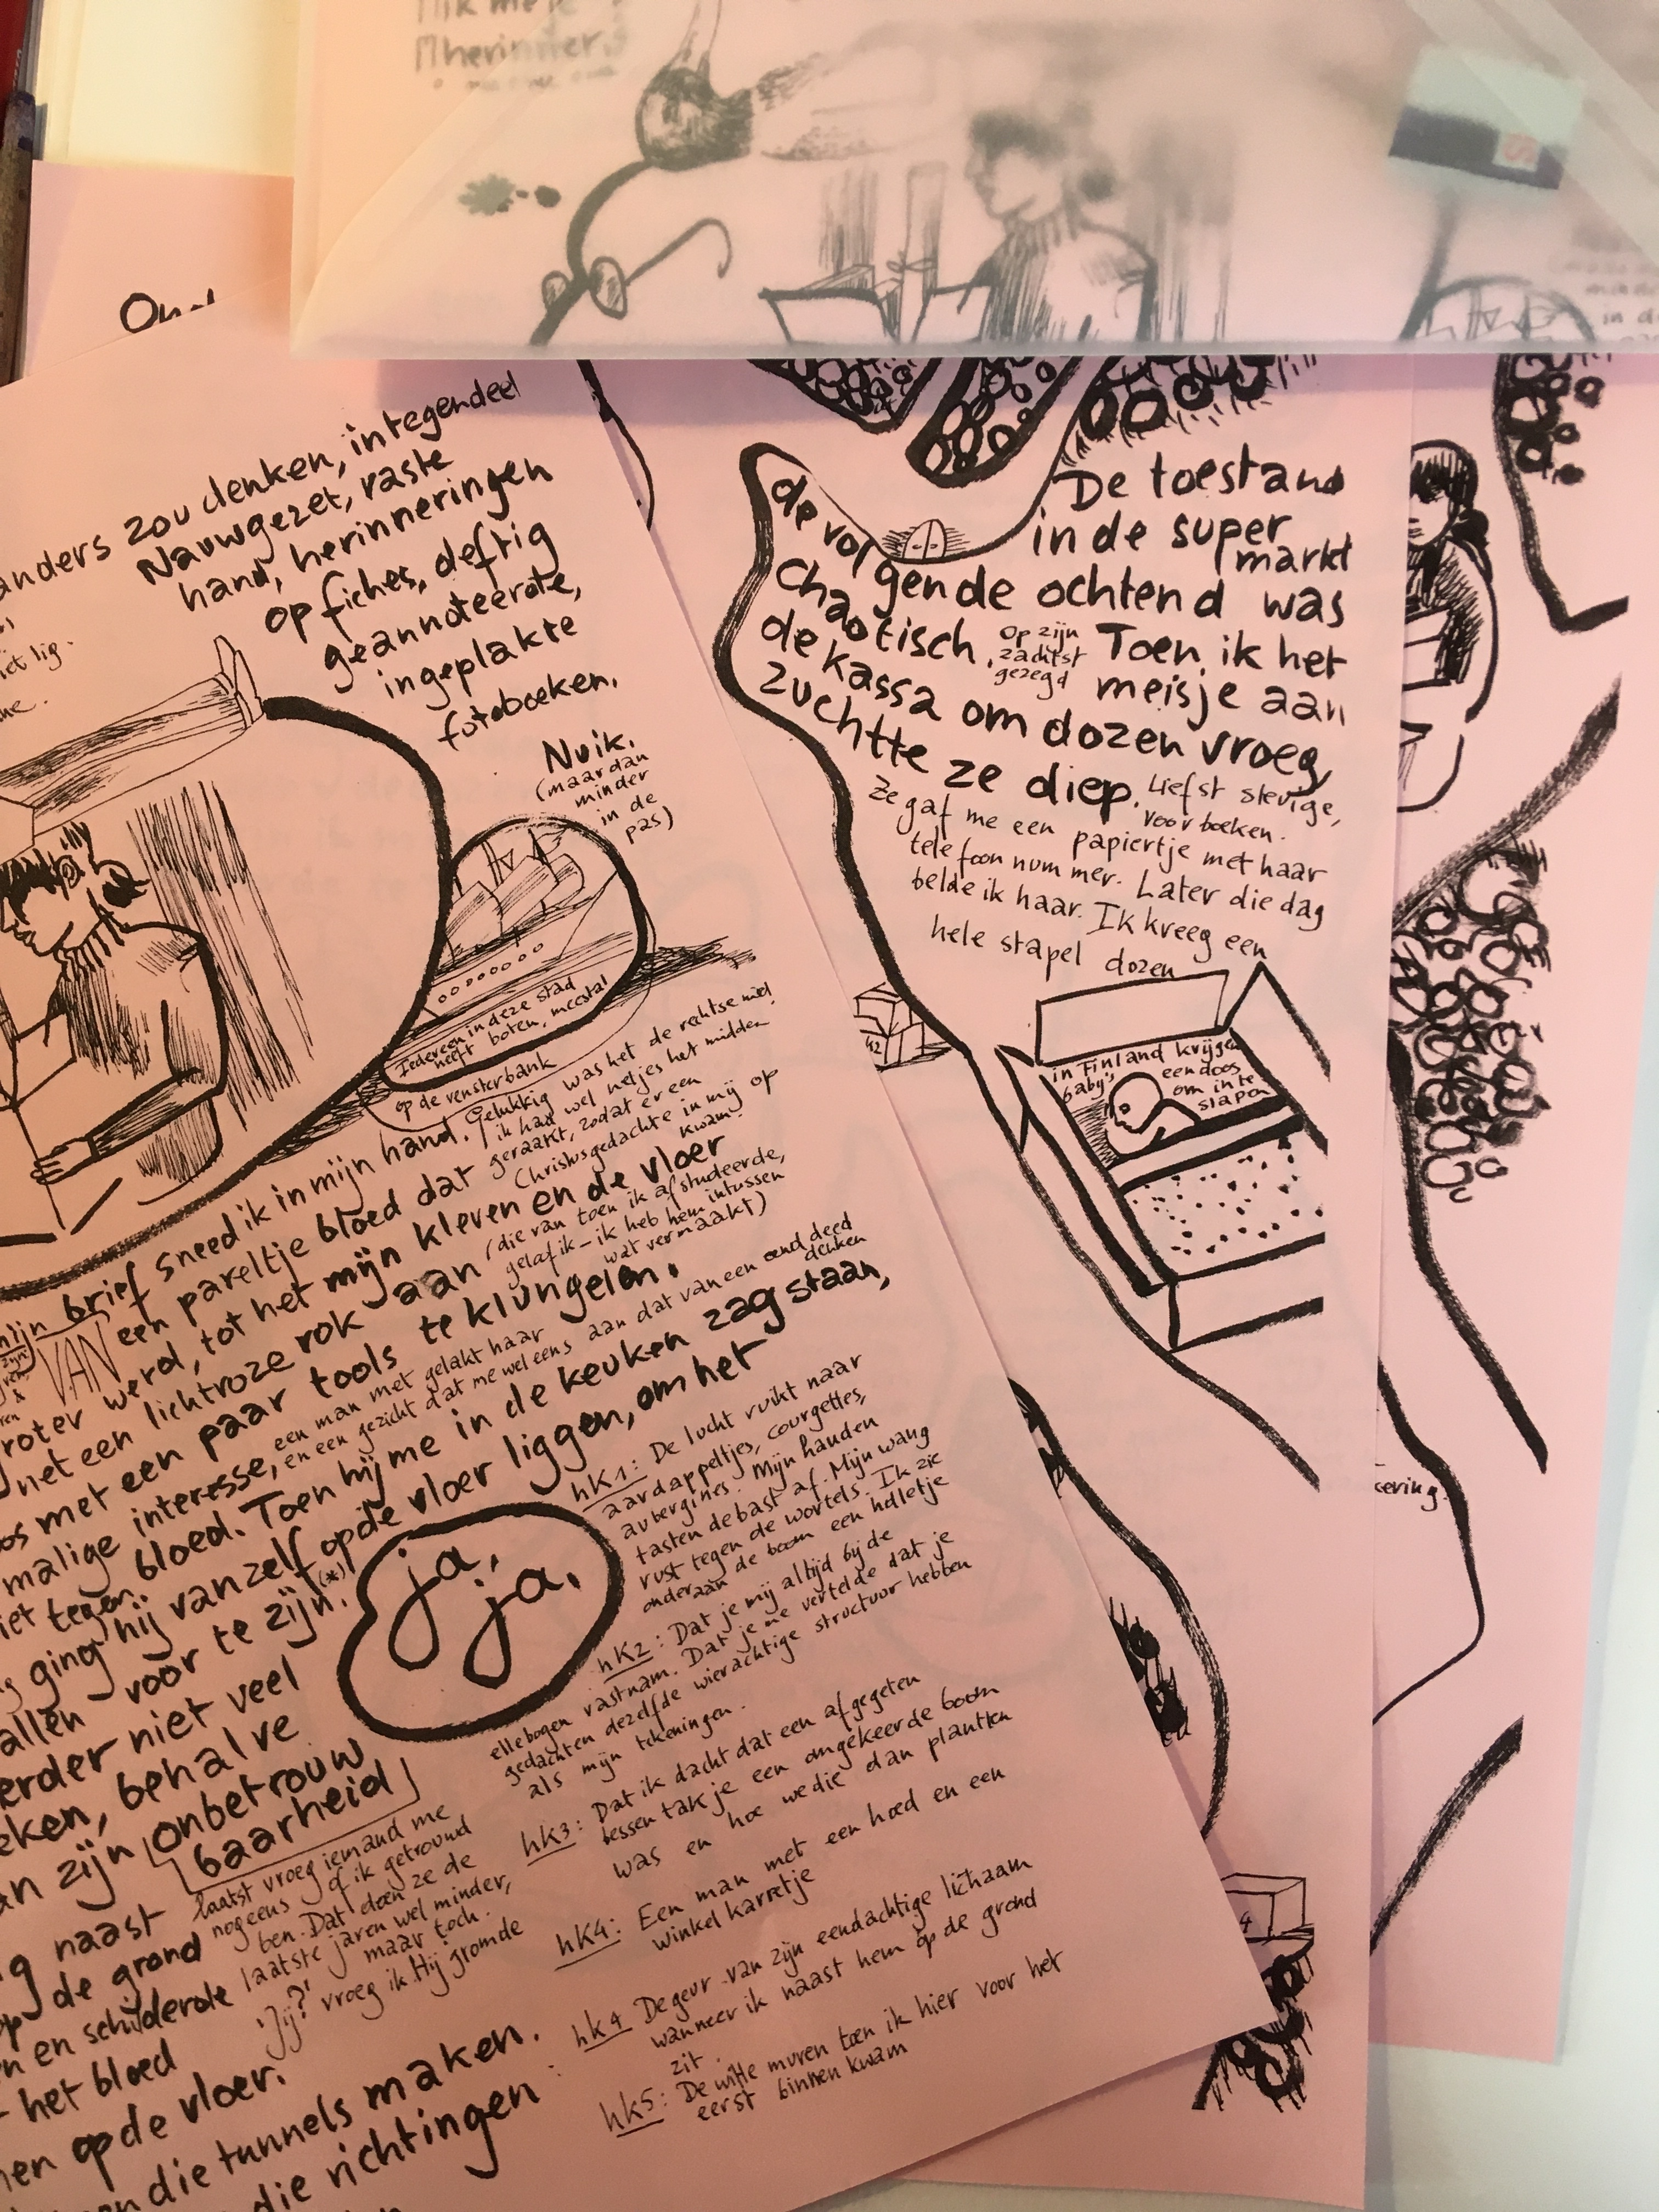 On
anders zou denken, integendeel
Nauwgezet, vaste
hand, herinneringen
op fiches, deftig
geannoteerde,
ingeplakte
fotoboeken.
Nuik.
(maar dan
minder
in de
pas)
Iedereen in deze stad
heeft boten, meestal
op de vensterbank
brief sneed ik in mijn hand.
Gelukkig was het de rechtse niet
ik had wel netjes het midden
geraakt, zodat er een
Christusgedachte in mij op
kwam.
VAN een pareltje bloed dat
werd, tot het mijn kleven en de vloer
(die van toen ik afstudeerde,
geloof ik – ik heb hem intussen
wat vermaakt)
met een lichtroze rok aan
met een paar tools te klungelen.
een man met gelakt haar
en een gezicht dat me wel eens aan dat van een eend deed
denken
malige interesse,
bloed. Toen hij me in de keuken zag staan,
ging hij vanzelf op de vloer liggen, om het
vallen voor te zijn. (*)
ja,
ja.
verder niet veel
behalve
zijn onbetrouw
baarheid
laatst vroeg iemand me
nog eens of ik getrouwd
ben. Dat doen ze de
laatste jaren wel minder,
maar toch.
'Jij?' vroeg ik. Hij gromde
naast
op de grond
en schilderde
het bloed
op de vloer.
die tunnels maken.
die richtingen
hk1: De lucht ruikt naar
aardappeltjes, courgettes,
aubergines. Mijn handen
tasten de bast af. Mijn wang
rust tegen de wortels. Ik zie
onderaan de boom een holletje
hk2: Dat je mij altijd bij de
ellebogen vastnam. Dat je me vertelde dat je
gedachten dezelfde wierachtige structuur hebben
als mijn tekeningen.
hk3: Dat ik dacht dat een afgegeten
bessentakje een omgekeerde boom
was en hoe we die dan plantten
hk4: Een man met een hoed en een
winkelkarretje
hk4 De geur van zijn eendachtige lichaam
wanneer ik naast hem op de grond
zit.
hk5: De witte muren toen ik hier voor het
eerst binnen kwam
De toestand
in de super
markt
de vol
gende ochtend was
chaotisch, op zijn
zachtst
gezegd
Toen ik het
meisje aan
de kassa om dozen vroeg,
zuchtte ze diep.
Liefst stevige,
voor boeken.
Ze gaf me een papiertje met haar
telefoonnummer. Later die dag
belde ik haar. Ik kreeg een
hele stapel dozen
in Finland krijgen
baby's een doos
om in te
slapen
in d